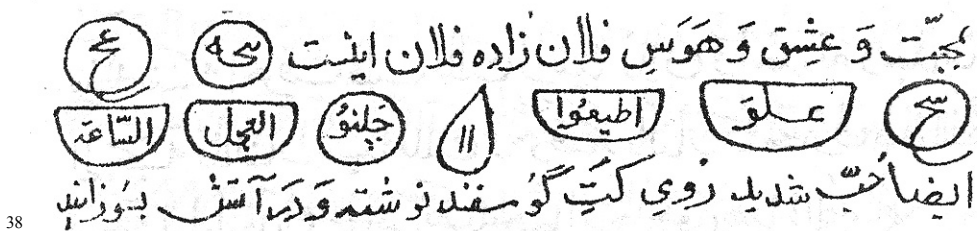 محبّت وَ عِشِق وَ هَوَسِ فلان زاده فلان اینست
علق اطیعُوا ١١ العجل السّاعة
ایضاً حُبّ شدید رُویِ کتِ گوُسفند نوشته وَ دَر آتش بسُوزانند
38